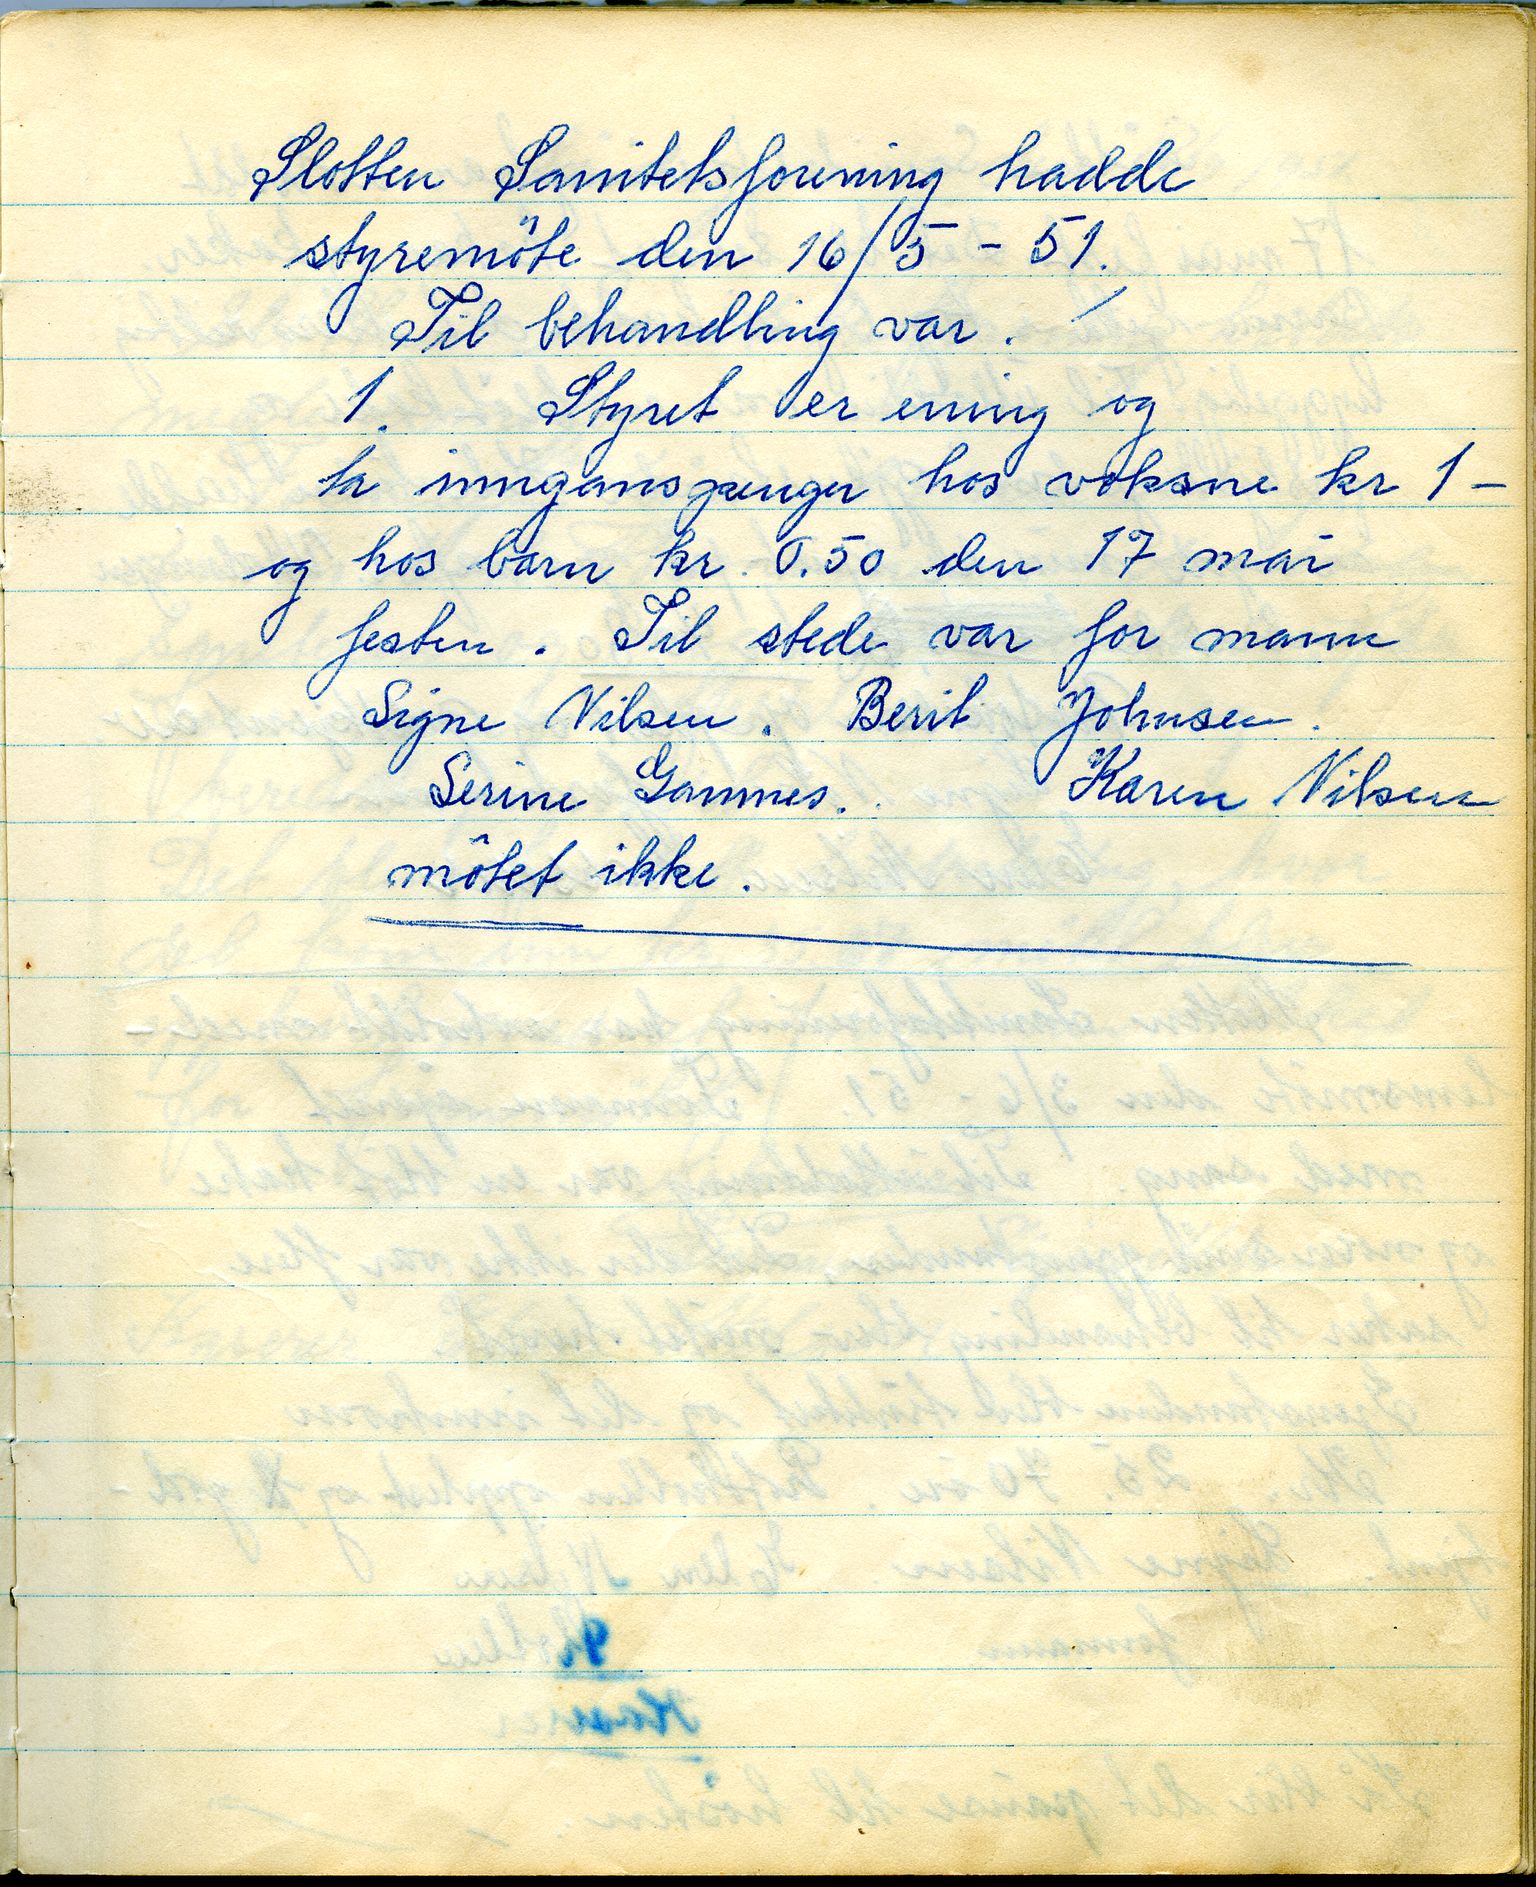 Slotten Sanitetsforening hadde
styremöte den 16/5 - 51.
Til behandling var.
1. Styret er ening og
ta innganspenger hos voksne kr 1 -
og hos barn kr. 0.50 den 17 mai
festen. Til stede var for mann
Signe Nilsen. Berit Johnsen.
Serine Gamnes. Karen Nilsen
mötet ikke.